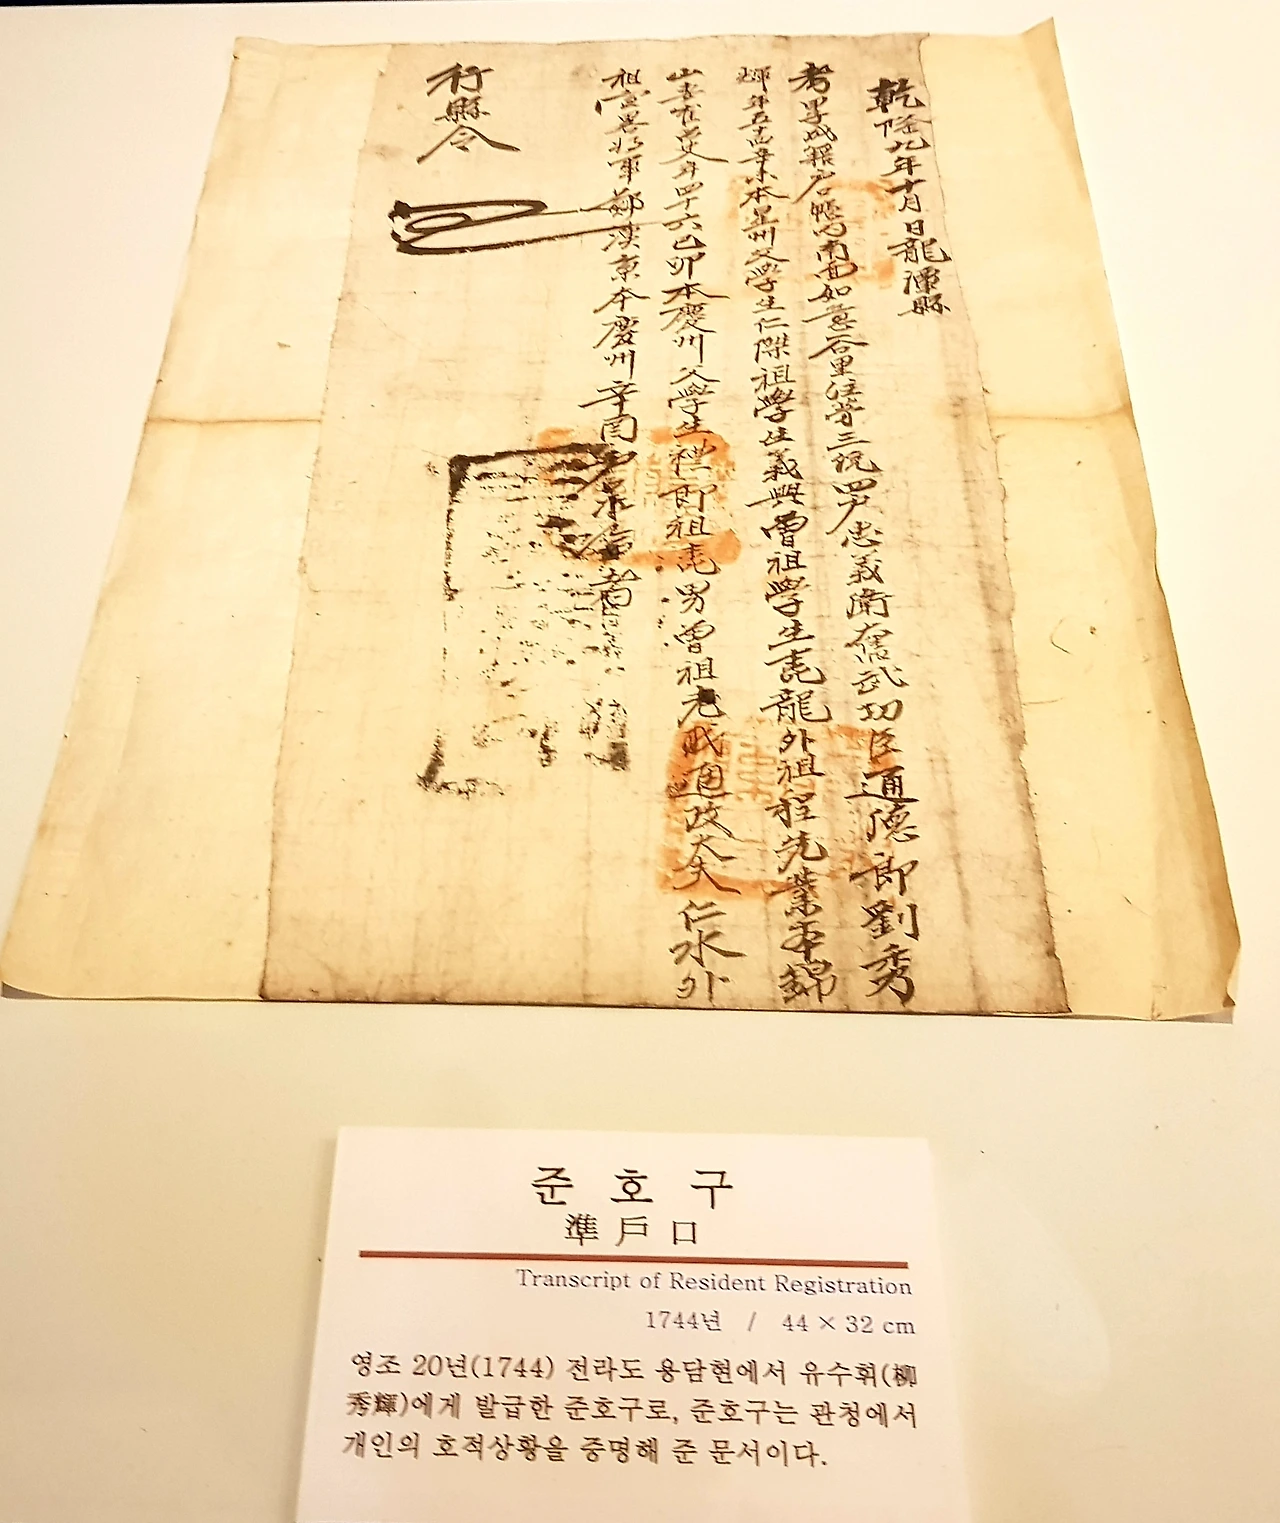 乾隆九年十月日龍潭縣
考甲子成籍户帳內南面如意谷里住第三統四户忠義衛奮武功臣通德郎劉秀
輝年五十四辛未本 州父學生仁傑祖學生義興曾祖學生 龍外祖程先業本錦
山妻崔 年四十六己卯本慶州父學生 郎祖 男曾祖老職通政大夫仁水外
祖 將軍鄭漢京本慶州辛酉
行縣令
준호구
準戶口
Transcript of Resident Registration
1744년 / 44 × 32 cm
영조 20년(1744) 전라도 용담현에서 유수휘(柳
秀輝)에게 발급한 준호구로, 준호구는 관청에서
개인의 호적상황을 증명해 준 문서이다.